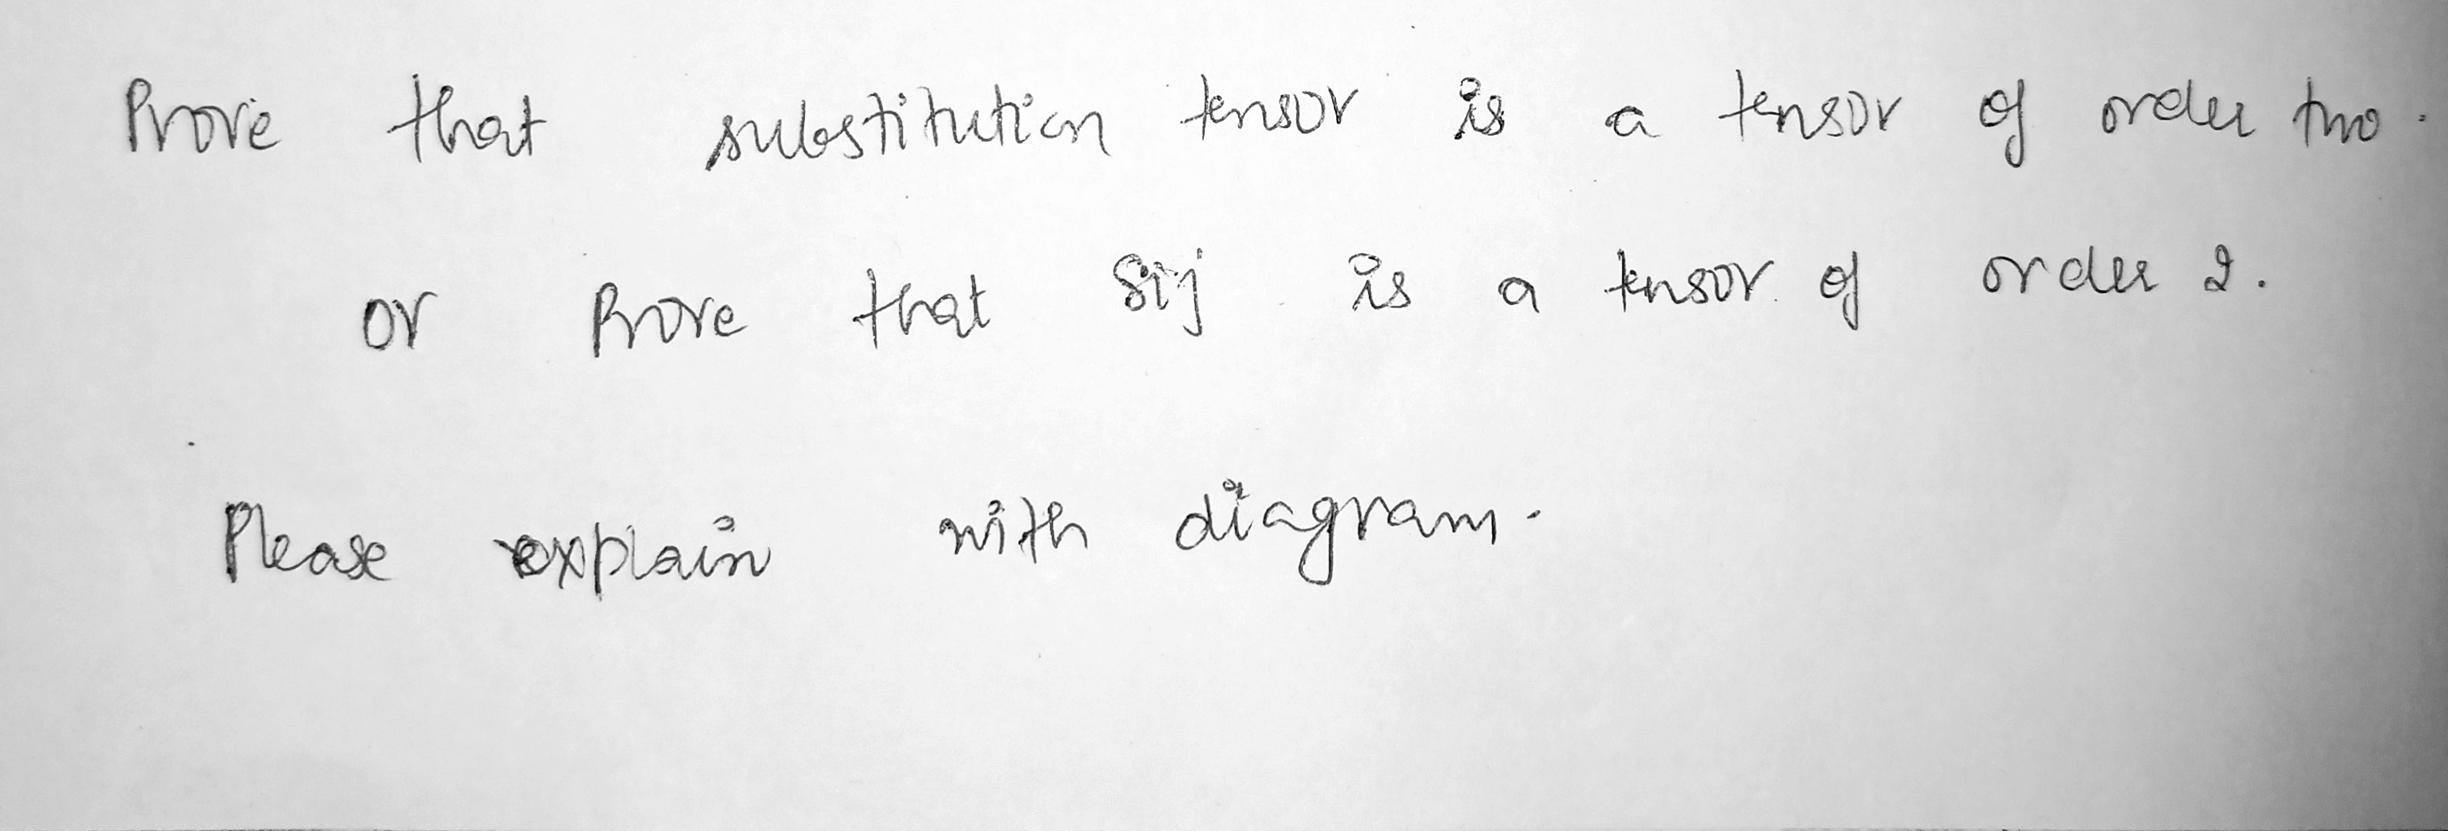 Prove that substitution tensor is a tensor of order two.
or Prove that δij is a tensor of order 2.
Please explain with diagram.